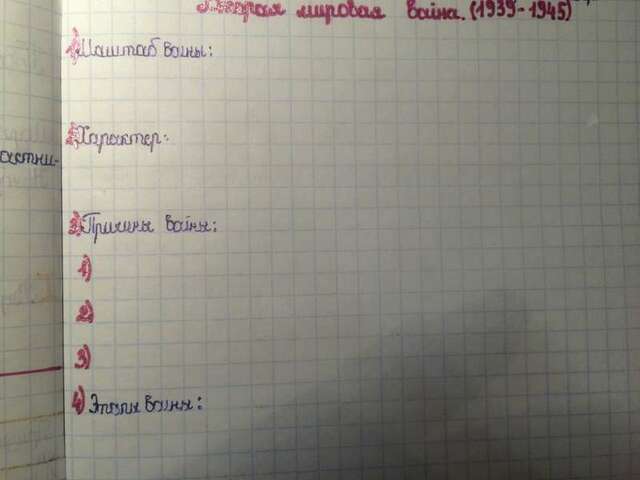 Вторая мировая война. (1939-1945)
1) Масштаб войны:
2) Характер:
астни-
3) Причины войны:
1)
2)
3)
4) Этапы войны: